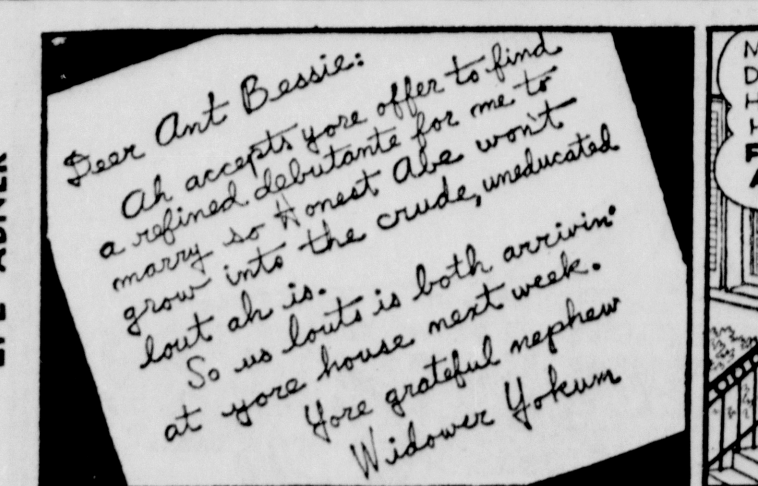 Deer Ant Bessie:
Ah accepts yore offer to find
a refined debutante for me to
marry so Honest Abe won't
grow into the crude, uneducated
lout ah is.
So us louts is both arrivin'
at yore house next week.
Yore grateful nephew
Widower Yokum